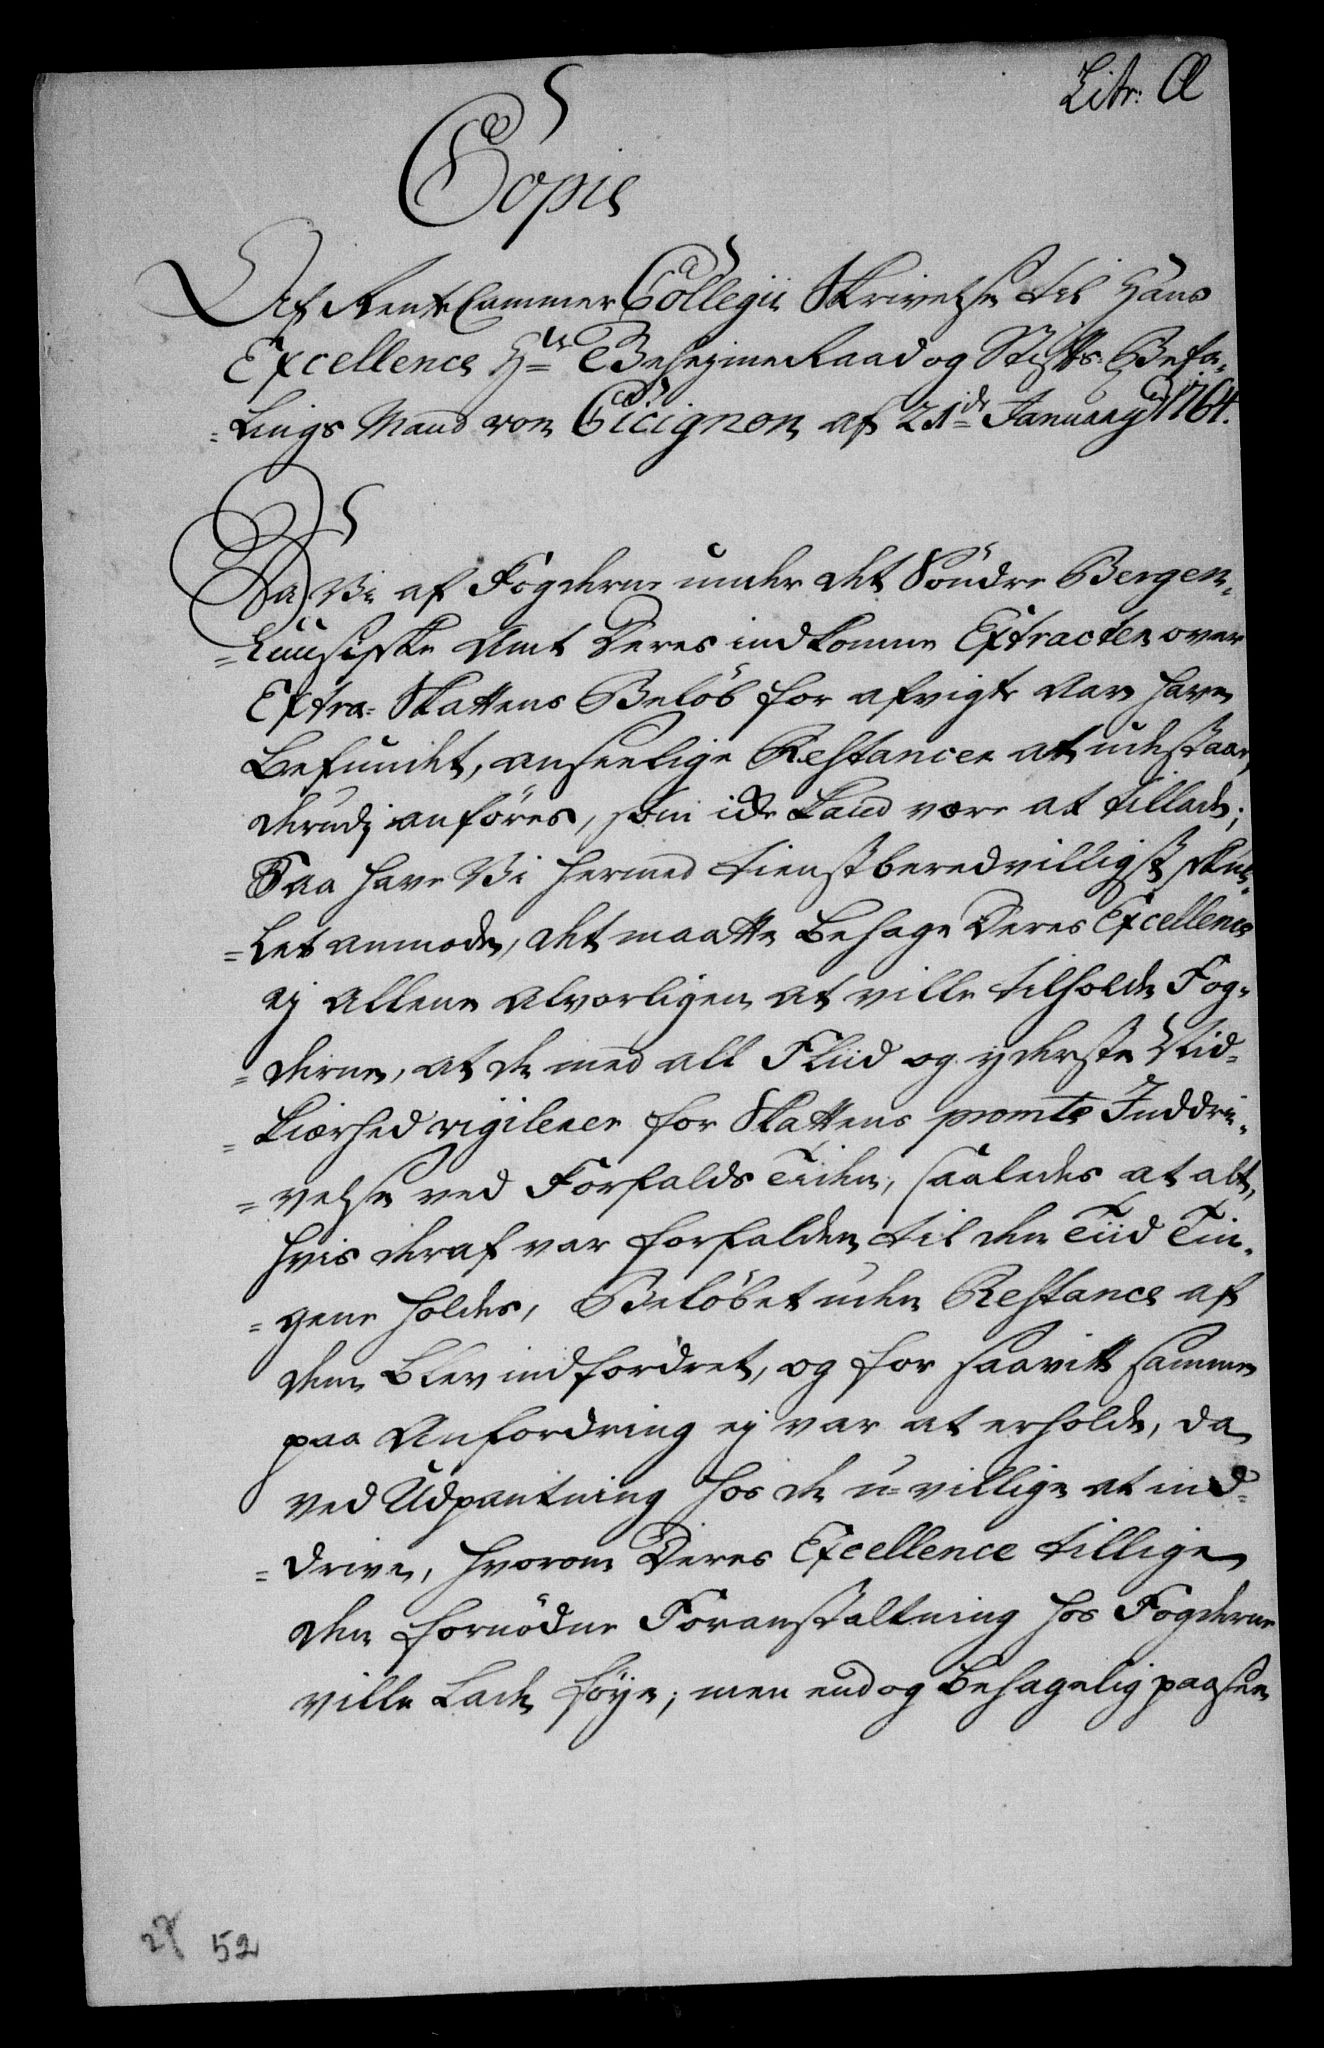 Litr: Æ
Copie
Af Rente Cammer Collegii Skrivelse til Hans
Excellence Hr Geheyme Raad og Stifts Befa-
=lings Mand von Cicignon af 21de January 1764.
Da Vi af Fogderne under det Söndre Bergen-
=huusiske Amt Deres indkomne Extracter over
Extra-Skattens Belöb for afvigte Aar have
befundet, anseelige Restancer at udestaar,
derudj anföres, som icke kand være at tillade;
Saa have Vi hermed tienstberedvilligst skul-
=let anmode, det maatte behage Deres Excellence
ej allene alvorligen at ville tilholde Fog-
=derne, at de med all Fliid og yderste Vid-
=kiærhed vigilerer for Skattens promte Inddri-
=velse ved Forfalds Tiiden, saaledes at alt,
hvis deraf var forfalden til den Tiid Tin-
=gene holdes, Belöbet uden Restance af
dem blev indfordret, og for saavitt samme
paa Anfordring ej var at erholde, da
ved Udpantning hos de u-villige at ind-
=drive, hvorom Deres Excellence tillige
den fornödne Foranstaltning hos Fogderne
ville lade föye; men endog behagelig paasee
52